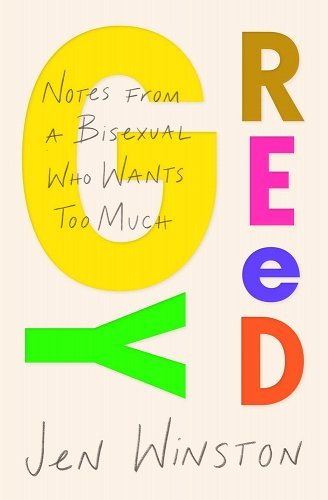 GREeDY
Notes from
a Bisexual
Who Wants
Too Much
Jen Winston